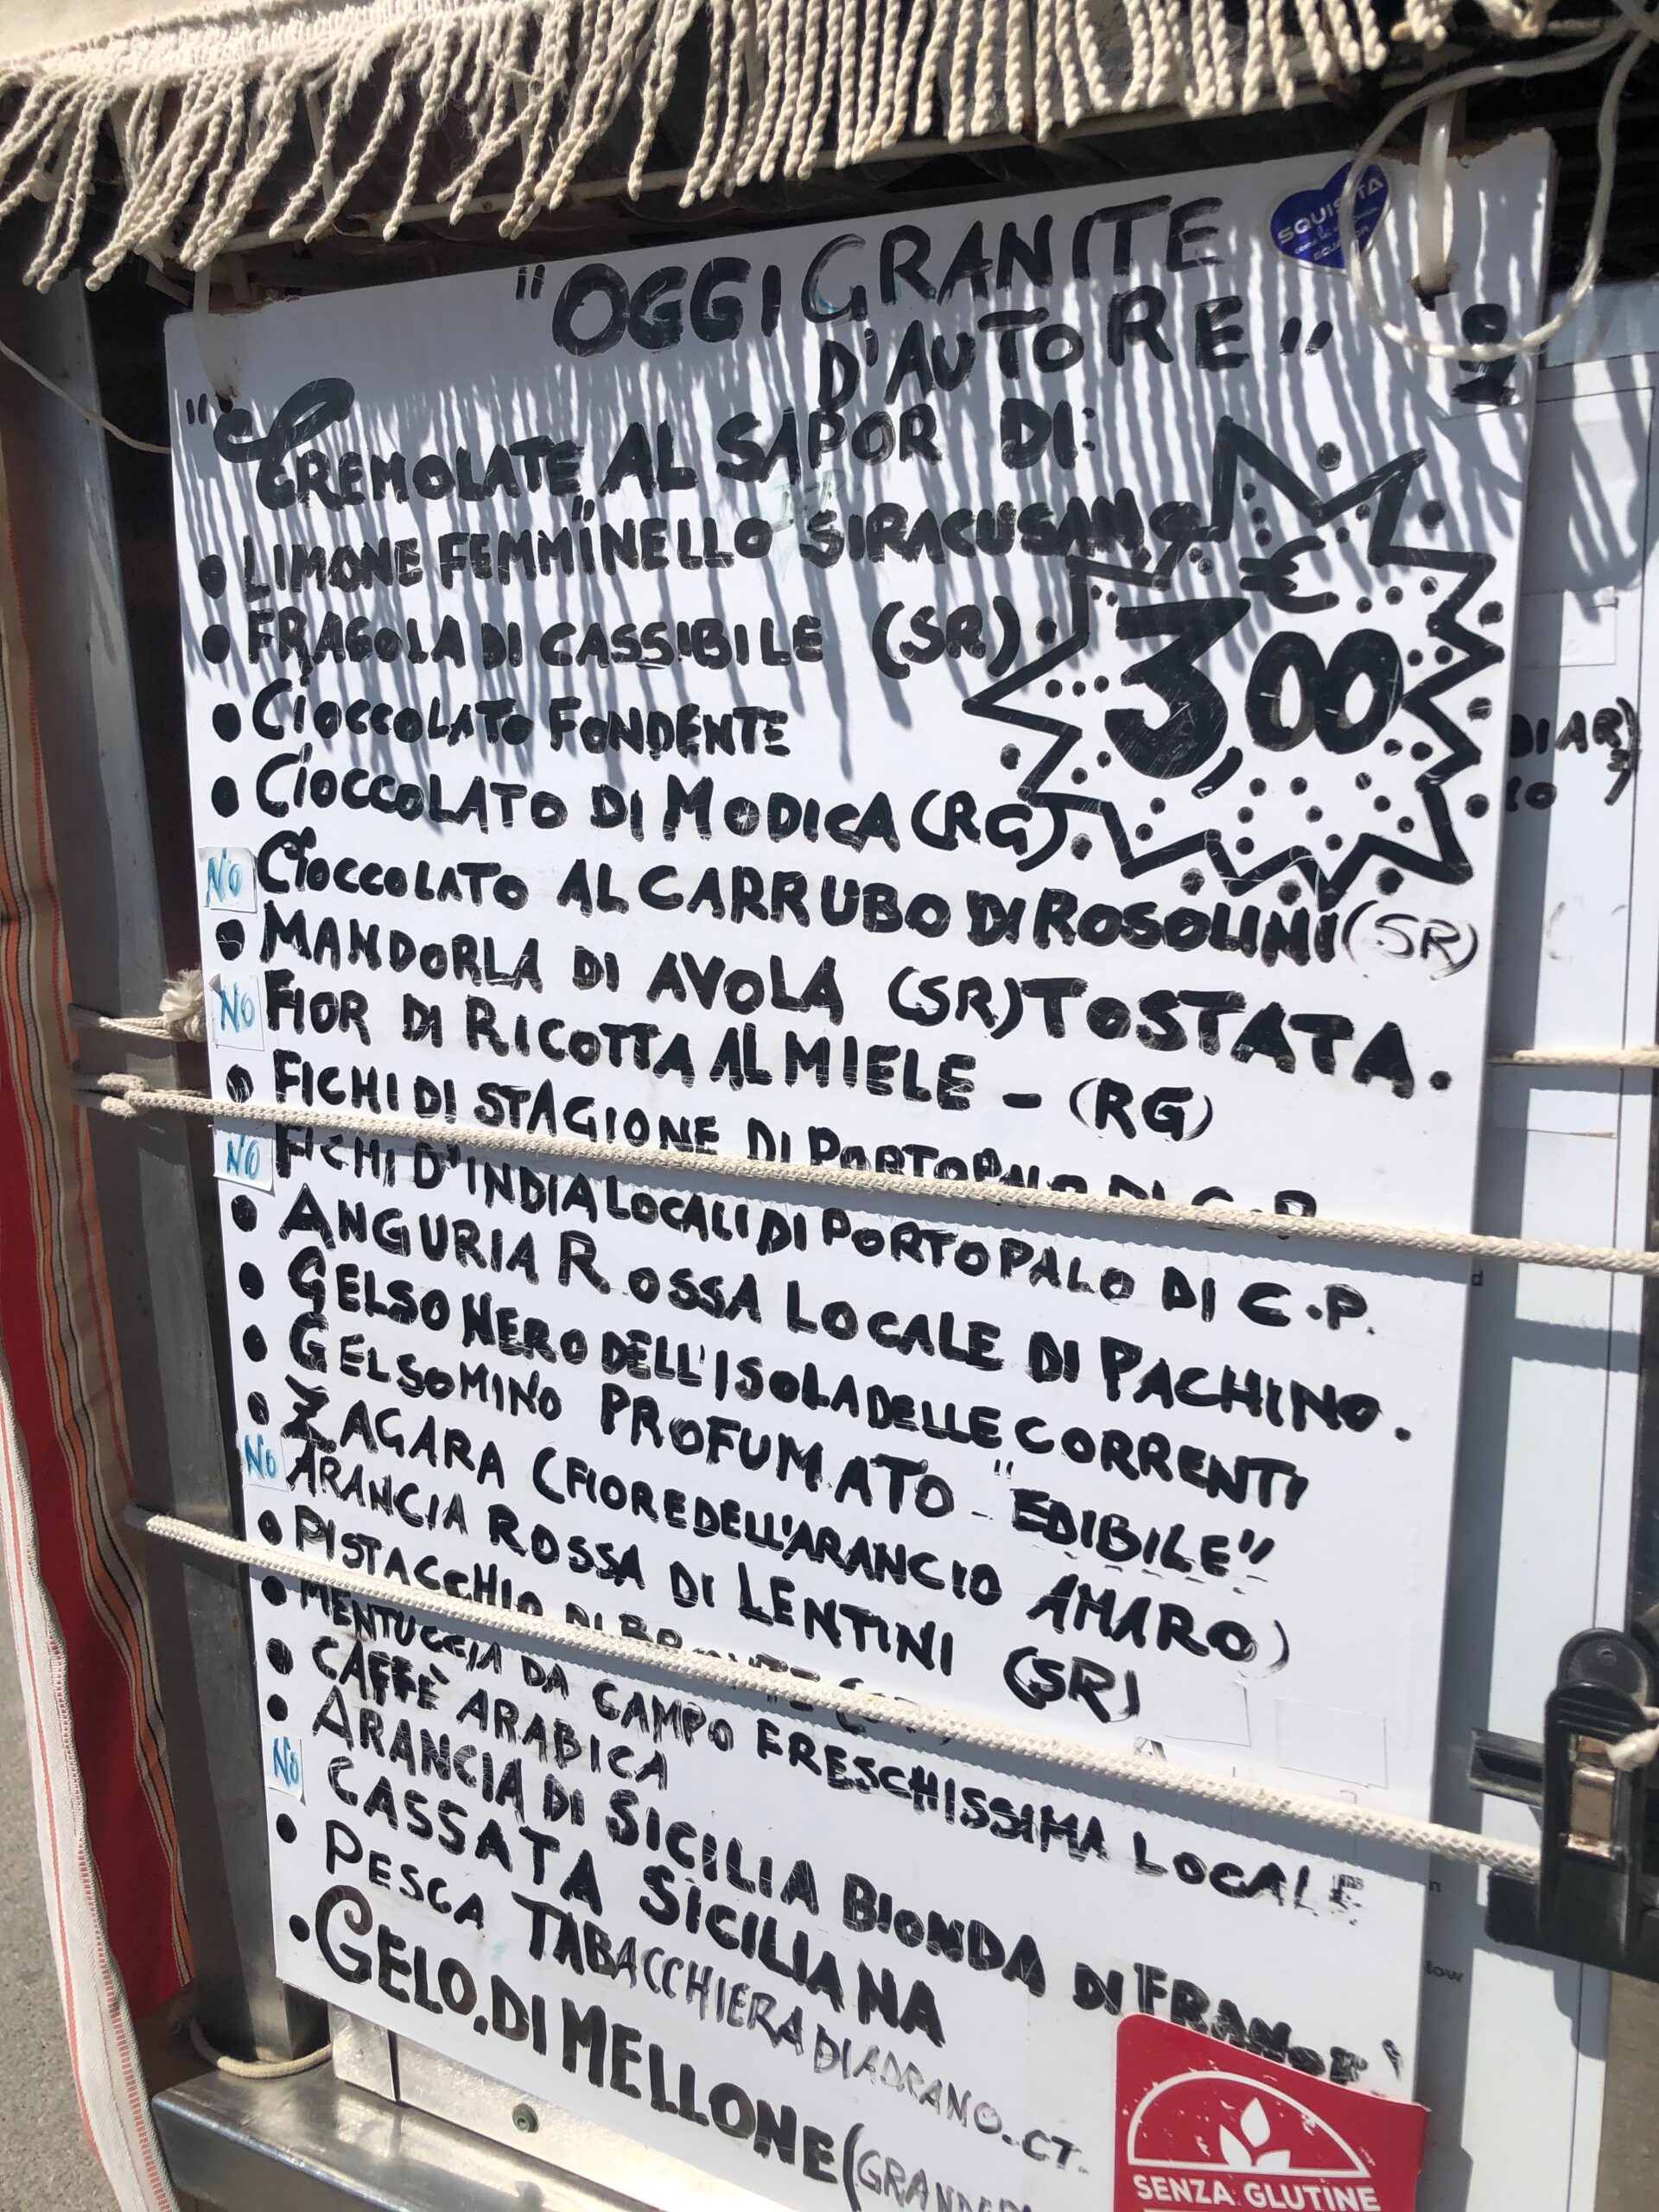 "OGGI GRANITE
D'AUTORE"
SQUISITA
"CREMOLATE AL SAPOR DI:
• LIMONE FEMMINELLO SIRACUSANO
• FRAGOLA DI CASSIBILE (SR)
€
3,00
• CIOCCOLATO FONDENTE
• CIOCCOLATO DI MODICA (RG).
No CIOCCOLATO AL CARRUBO DI ROSOLINI (SR)
• MANDORLA DI AVOLA (SR) TOSTATA.
No FIOR DI RICOTTA AL MIELE - (RG)
• FICHI DI STAGIONE DI PORTOPALO DI C.P.
No FICHI D'INDIA LOCALI DI PORTOPALO DI C.P.
• ANGURIA ROSSA LOCALE DI PACHINO.
• GELSO NERO DELL'ISOLA DELLE CORRENTI
• GELSOMINO PROFUMATO - "EDIBILE"
• ZAGARA (FIORE DELL'ARANCIO AMARO)
No ARANCIA ROSSA DI LENTINI (SR)
• PISTACCHIO DI BRONTE
• MENTUCCIA DA CAMPO FRESCHISSIMA LOCALE
• CAFFÈ ARABICA
• ARANCIA DI SICILIA BIONDA DI
No CASSATA SICILIANA
• PESCA TABACCHIERA DI ADRANO. CT.
• GELO DI MELLONE
SENZA GLUTINE